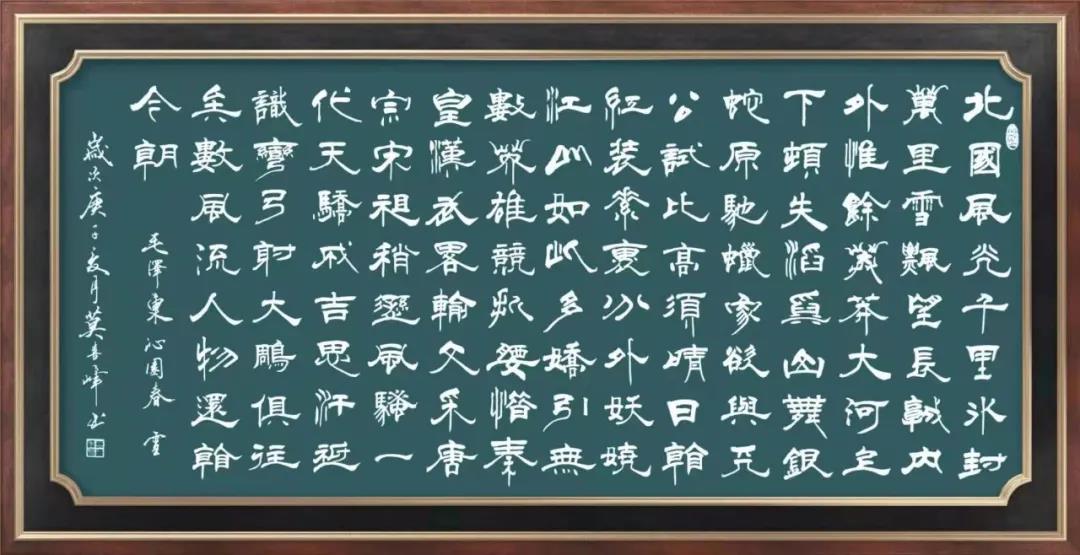 北國風光千里冰封
萬里雪飄望長城內
外惟餘莽莽大河上
下頓失滔滔山舞銀
蛇原馳蠟象欲與天
公試比高須晴日看
紅裝素裹分外妖嬈
江山如此多嬌引無
數英雄競折腰惜秦
皇漢武略輸文采唐
宗宋祖稍遜風騷一
代天驕成吉思汗衹
識彎弓射大鵰俱往
矣數風流人物還看
今朝
毛澤東沁園春 雪
歲次庚子夏月莫喜峰书